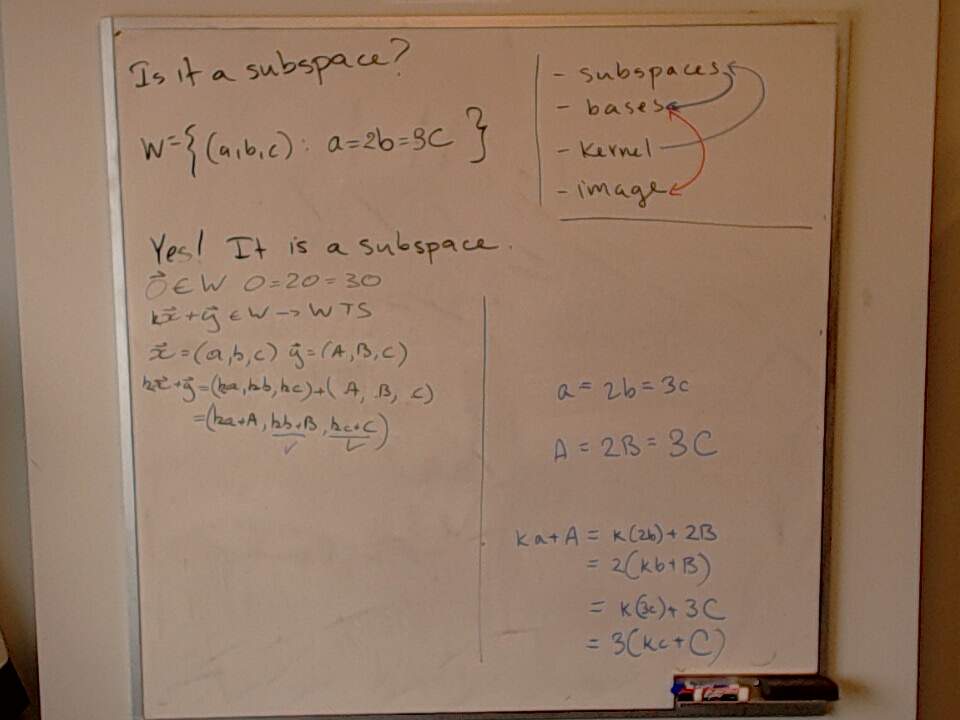 Is it a subspace?
W={(a,b,c): a=2b=3C}
- subspaces
- bases
- kernel
- image
Yes! It is a subspace.
0⃗ ∈ W 0=20=30
kx⃗+y⃗ ∈ W → WTS
x⃗=(a,b,c) y⃗=(A,B,C)
kx⃗+y⃗=(ka,kb,kc)+(A, B, C)
=(ka+A, kb+B, kc+C)
✓ ✓
a = 2b = 3c
A = 2B = 3C
ka+A = k(2b)+2B
= 2(kb+B)
= k(3c)+3C
= 3(kc+C)